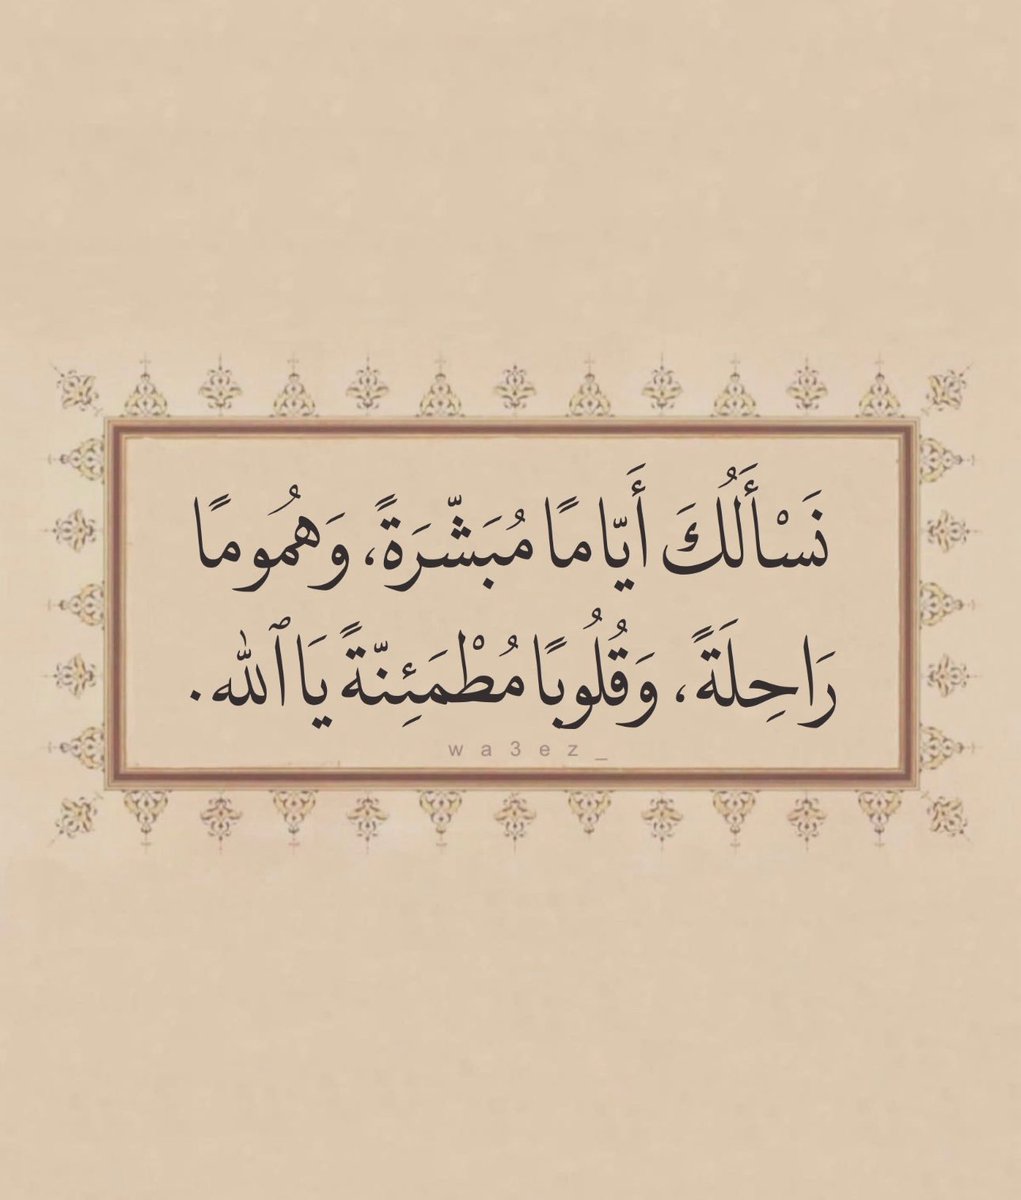 نَسْأَلُكَ أَيّامًا مُبَشّرَةً، وَهُمُومًا
رَاحِلَةً، وَقُلُوبًا مُطْمَئِنّةً يَا ٱللّٰه.
wa3ez_